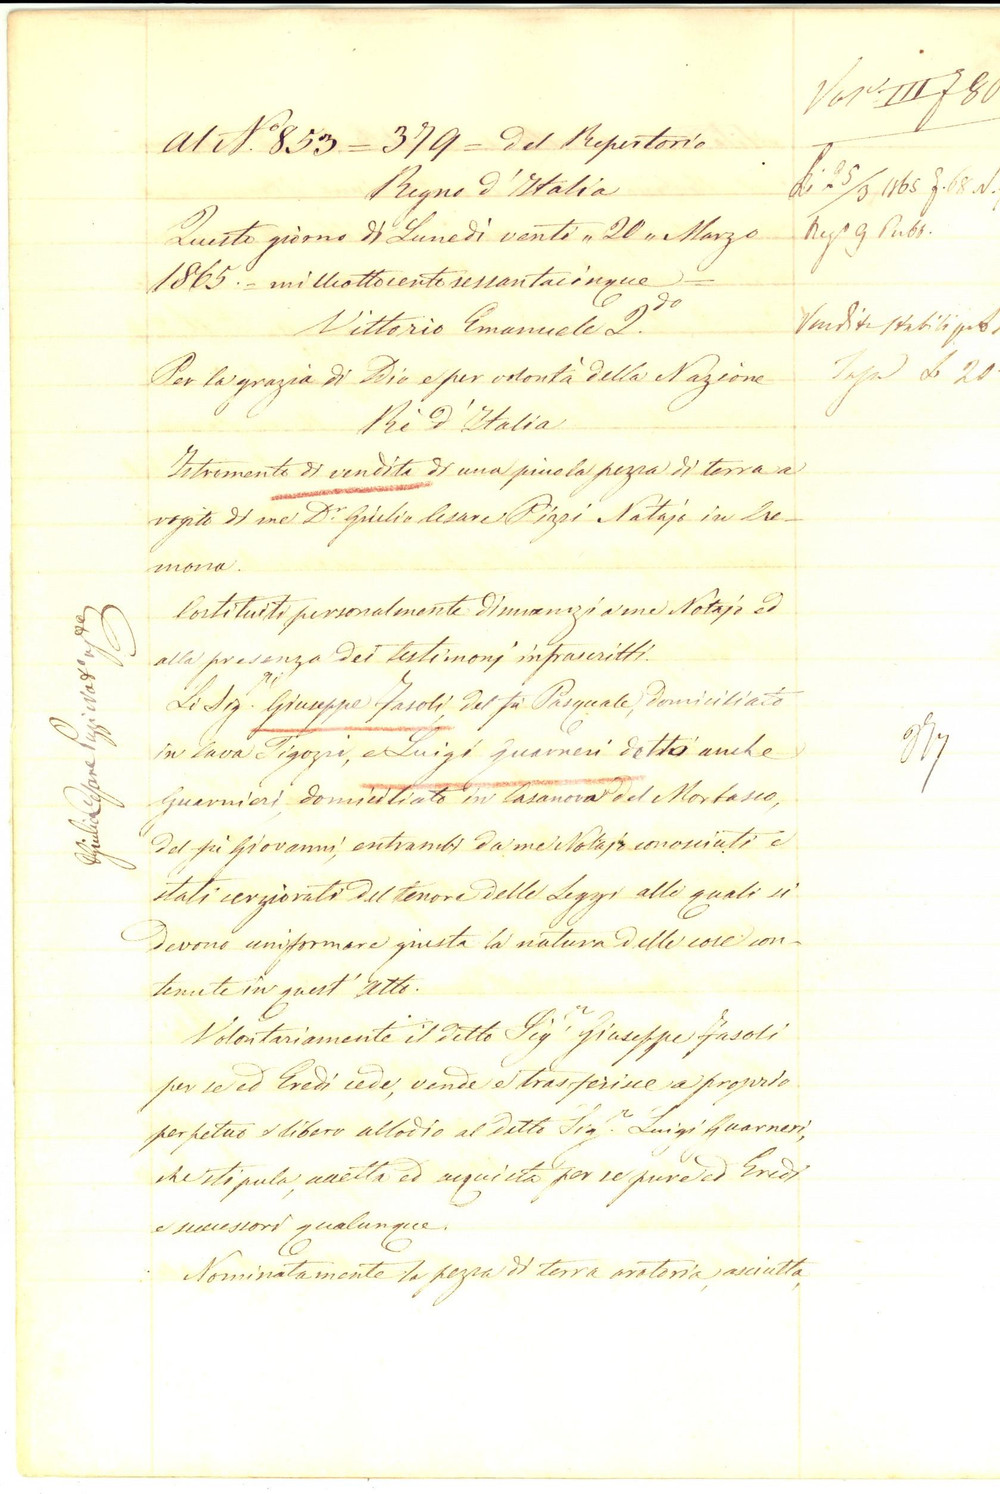 Al N.º 853 = 379 = del Repertorio
Regno d'Italia
Questo giorno di Lunedì venti „ 20 „ Marzo
1865. = milleottocentosessantacinque =
Vittorio Emanuele 2.do
Per la grazia di Dio e per volontà della Nazione
Rè d'Italia
Istromento di vendita di una piccola pezza di terra a
rogito di me Dr. Giulio Cesare Pizzi Notajo in Cre-
mona.
Costituiti personalmente dinnanzi a me Notajo ed
alla presenza dei testimonj infrascritti.
Li Sig.ri Giuseppe Fasoli del fù Pasquale, domiciliato
in Cava Tigozzi, e Luigi Guarneri detto anche
Guarnieri, domiciliato in Casanova del Morbasco,
del fù Giovanni, entrambi da me Notajo conosciuti e
stati cerziorati del tenore delle Leggi alle quali si
devono uniformare giusta la natura delle cose con-
tenute in quest'Atto.
Volontariamente il detto Sig.r Giuseppe Fasoli
per se ed Eredi cede, vende e trasferisce a proprio
perpetuo e libero allodio al detto Sig.r Luigi Guarneri,
che stipula, accetta ed acquista per se pure ed Eredi
e successori qualunque.
Nominatamente la pezza di terra aratoria, asciutta,
Giulio Cesare Pizzi Not.o
III f 80
Li 25/3 1865 f. 68 N.
Reg.o 9 Pubb.
Vendita stabili
Tassa L 20